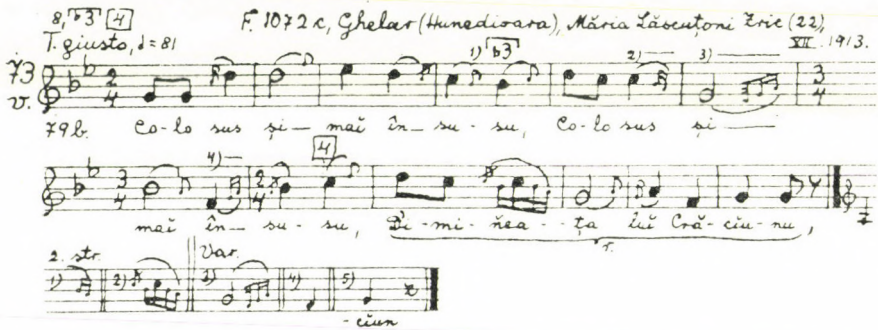 8, b3 4 F. 1072 c, Ghelar (Hunedioara), Măria Lăscuțoni Zric (22),
T. giusto, ♩= 81 1) b3 2) 3) XII. 1913.
73
v.
79b. Co-lo sus și — mai în — su - su, Co-lo sus și —
4) 4
mai în — su - su, Di-mi-ñea - ța lui Cră-ciu-nu,
r.
2. str. Var.
1) 2) 3) 4) 5)
-ciun